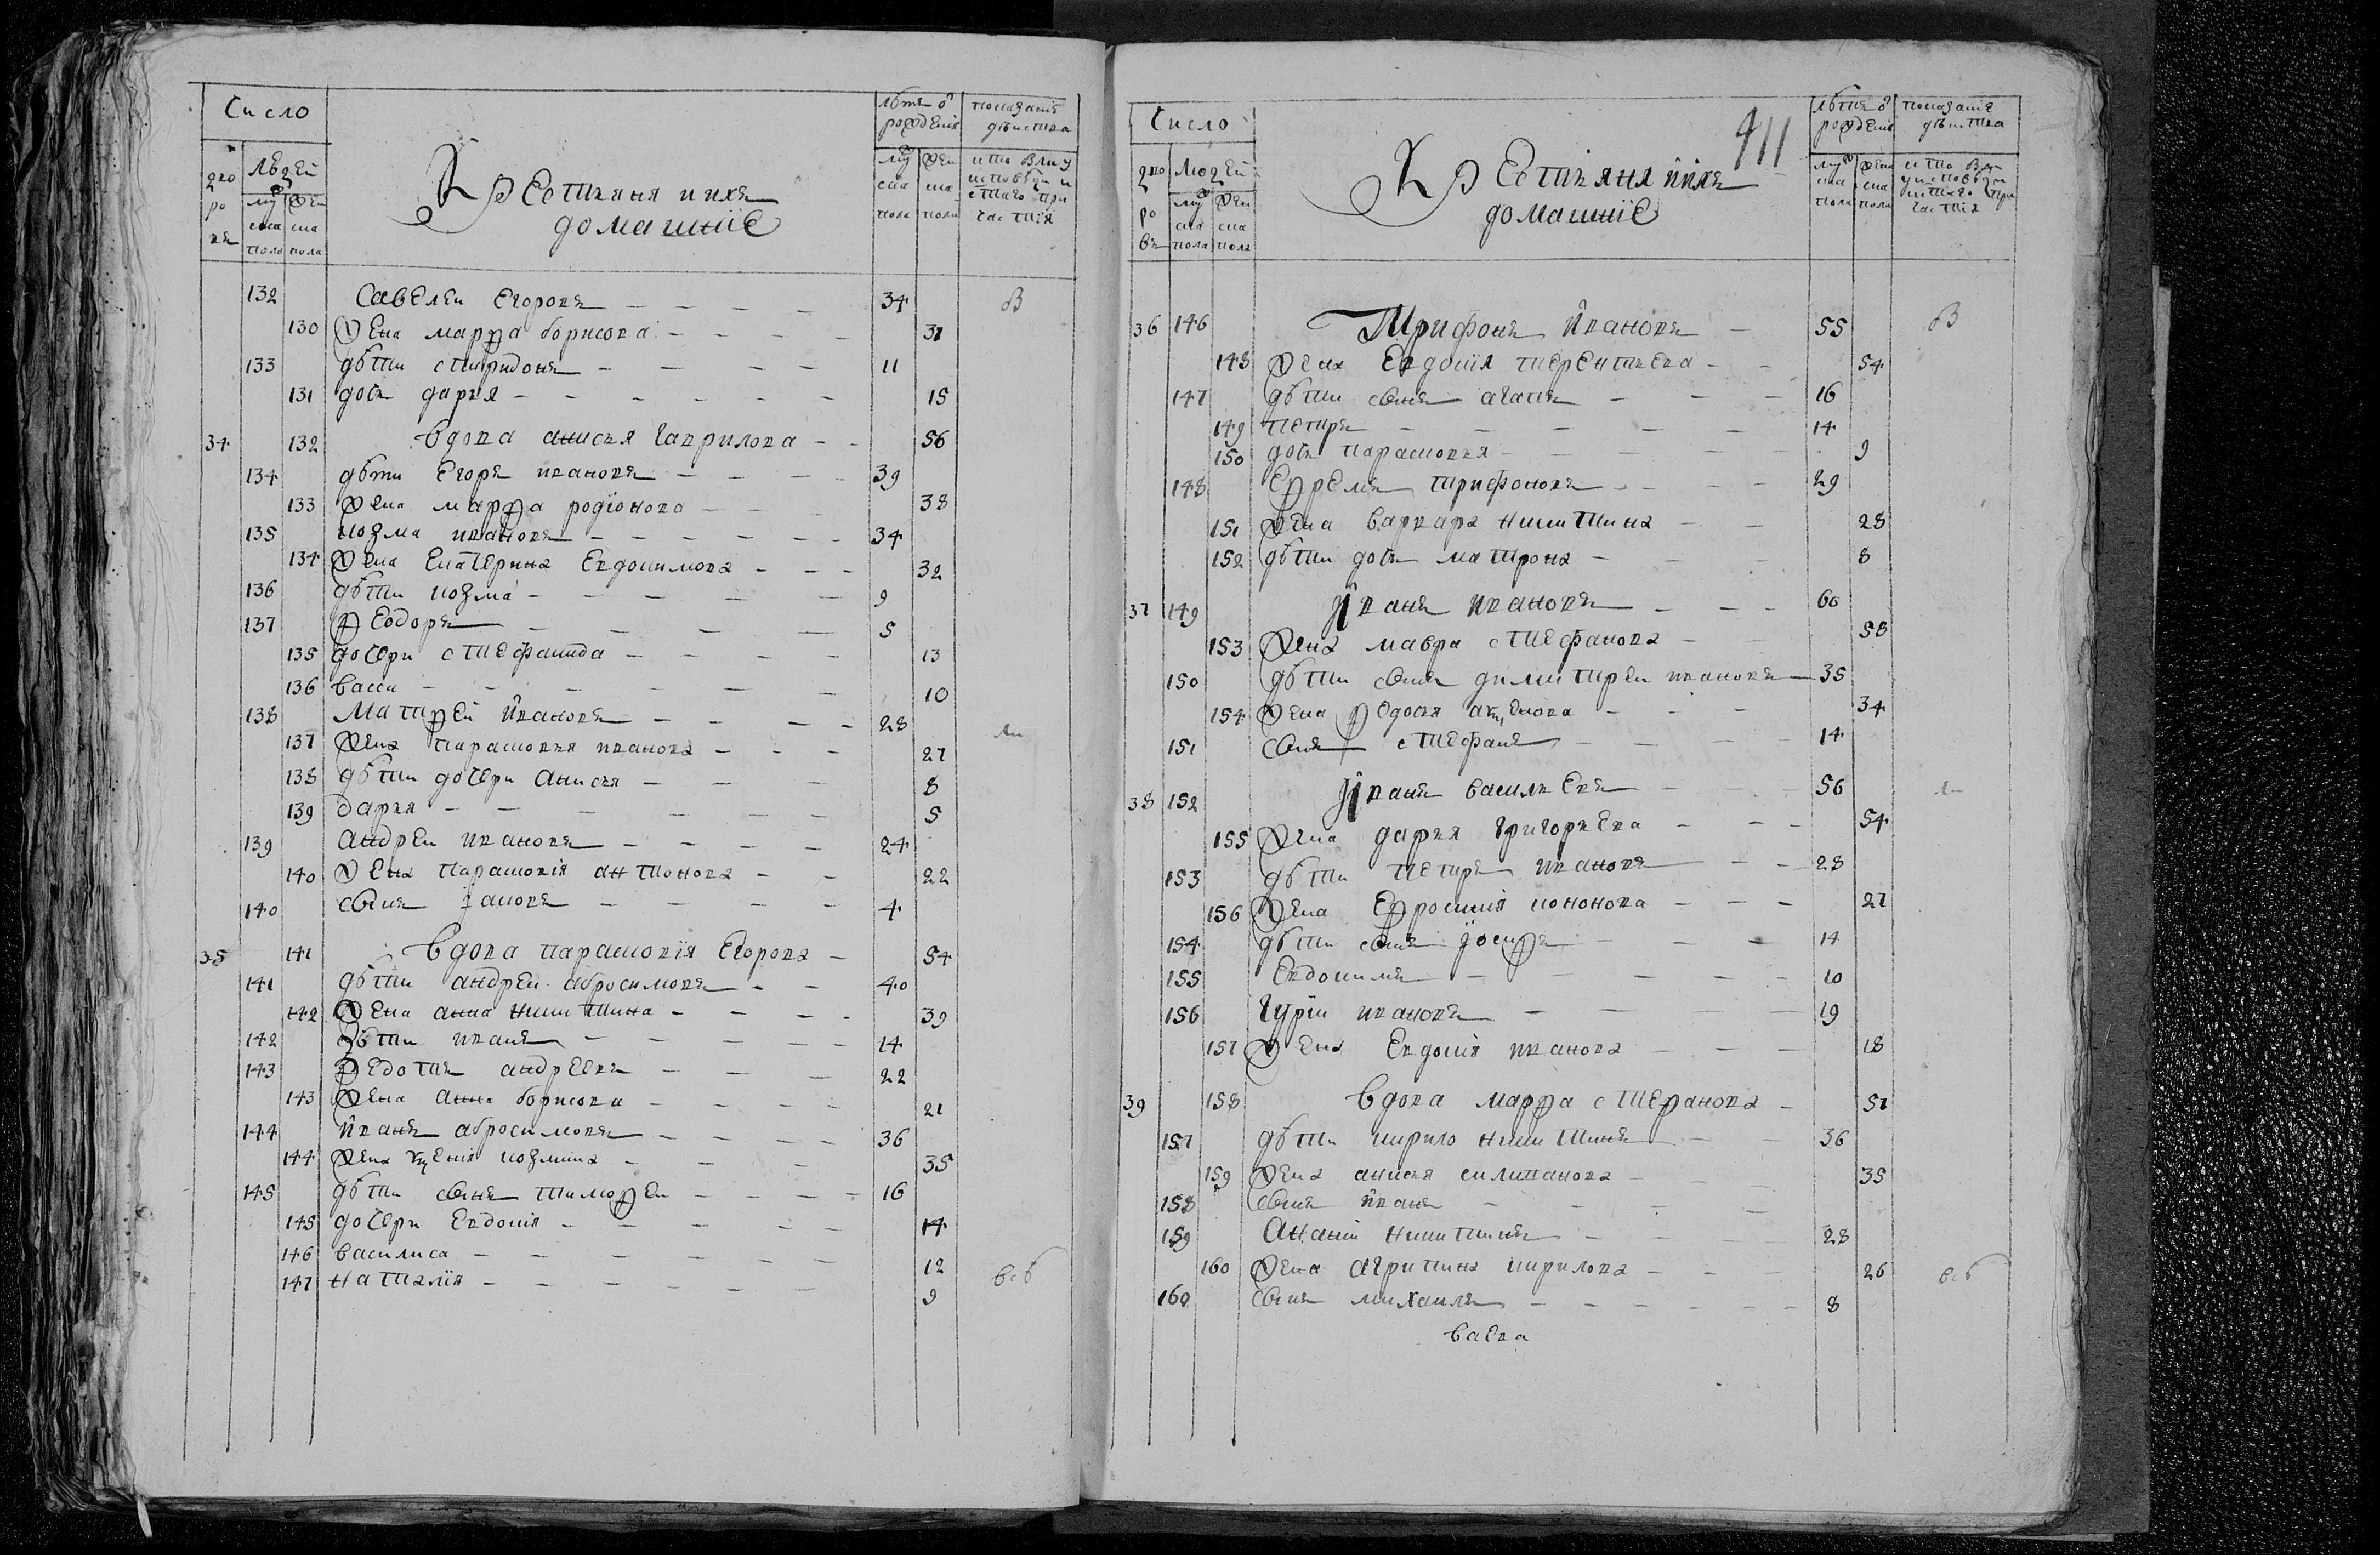 Число
дво ро въ
людей
муска пола
женска пола
Крестьяня и ихъ
домашніе
лѣтъ ѿ рожденія
муска пола
женска пола
показаніе дѣйства
кто был у исповѣди и с̃таго причастія
132 Савелеи Егоровъ 34 в
130 жена марѳа борисова 31
133 дѣти спиридонъ 11
131 дочь дарья 15
34 132 вдова анисья гаврилова 56
134 дѣти Егоръ ивановъ 39
133 жена марѳа родіонова 38
135 козма ивановъ 34
134 жена Екатерина Евдокимова 32
136 дѣти козма 9
137 Ѳеодоръ 5
135 дочери стефанида 13
136 васса 10
138 Матѳеи ивановъ 28
137 жена парасковья иванова 27
138 дѣти дочери анисья 8
139 дарья 5
139 андреи ивановъ 24
140 жена парасковія антонова 22
140 сынъ іаковъ 4
35 141 вдова парасковія Егорова 54
141 дѣти андреи абросимовъ 40
142 жена анна никитина 39
142 дѣти иванъ 14
143 Ѳедотъ андреевъ 22
143 жена анна борисова 21
144 иванъ абросимовъ 36
144 жена ксенія козмина 35
145 дѣти сынъ тимоѳеи 16
145 дочери Евдокія 14
146 василиса 12
147 наталія 9 всѣ
411
Число
дво ро въ
людей
муска пола
женска пола
Крестьяня и ихъ
домашніе
лѣтъ ѿ рожденія
муска пола
женска пола
показаніе дѣйства
кто был у исповѣди и с̃таго причастія
36 146 Трифонъ ивановъ 55 в
148 жена Евдокія терентьева 54
147 дѣти сынъ агапъ 16
149 петръ 14
150 дочь парасковья 9
148 Ефремъ трифоновъ 29
151 жена варвара никитина 28
152 дѣти дочь матрона 8
37 149 Иванъ ивановъ 60
153 жена мавра стефанова 58
150 дѣти сынъ димитреи ивановъ 35
154 жена Ѳедосья аксенова 34
151 сынъ стефанъ 14
38 152 Иванъ васильевъ 56
155 жена дарья григорьева 54
153 дѣти петръ ивановъ 28
156 жена Еѳросинія кононова 27
154 дѣти сынъ іосиѳъ 14
155 Евдокимъ 10
156 гуріи ивановъ 19
157 жена Евдокія иванова 18
39 158 вдова марѳа стеѳанова 51
157 дѣти кирило никитинъ 36
159 жена анисья силиванова 35
158 сынъ иванъ
159 ананіи никитинъ 28
160 жена агрипина кирилова 26 всѣ
160 сынъ михаилъ 8